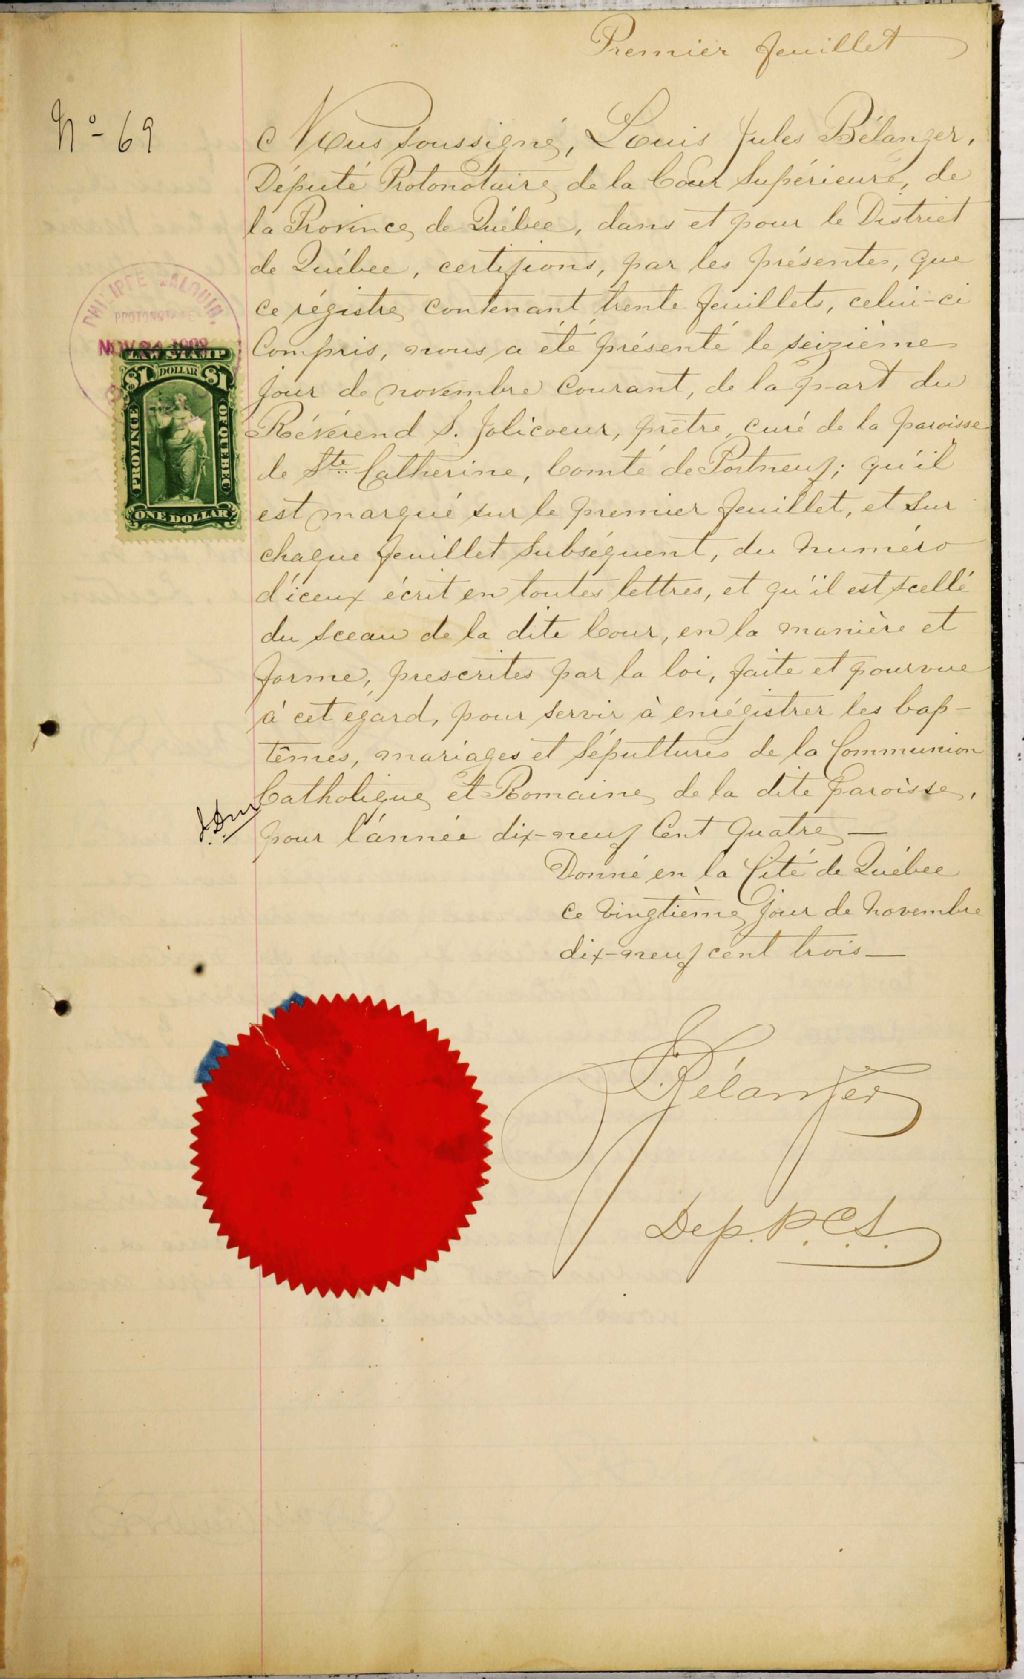 Premier feuillet
No 69
Nous soussigné, Louis Jules Bélanger,
Député Protonotaire, de la Cour Supérieure, de
la Province de Québec, dans et pour le District
de Québec, certifions, par les présentes, que
ce régistre contenant trente feuillets, celui-ci
Compris, nous a été présenté le seizième
jour de novembre courant, de la part du
Révérend S. Jolicoeur, prêtre, curé de la paroisse
de Ste Catherine, Comté de Portneuf; qu'il
est marqué sur le premier feuillet, et sur
chaque feuillet subséquent, du numéro
d'iceux écrit en toutes lettres, et qu'il est scellé
du sceau de la dite Cour, en la manière et
forme, prescrites par la loi, faite et pourvue
à cet égard, pour servir à enrégistrer les bap-
têmes, mariages et sépultures de la Communion
Catholique et Romaine, de la dite Paroisse,
pour l'année dix-neuf Cent Quatre —
Donné en la Cité de Québec
ce vingtième jour de Novembre
dix-neuf cent trois —
Bélanger
Dep. P. C. S.
PHILIPPE
PROTONOTAIRE
NOV
LAW STAMP
$1 DOLLAR $1
PROVINCE
OF QUEBEC
ONE DOLLAR